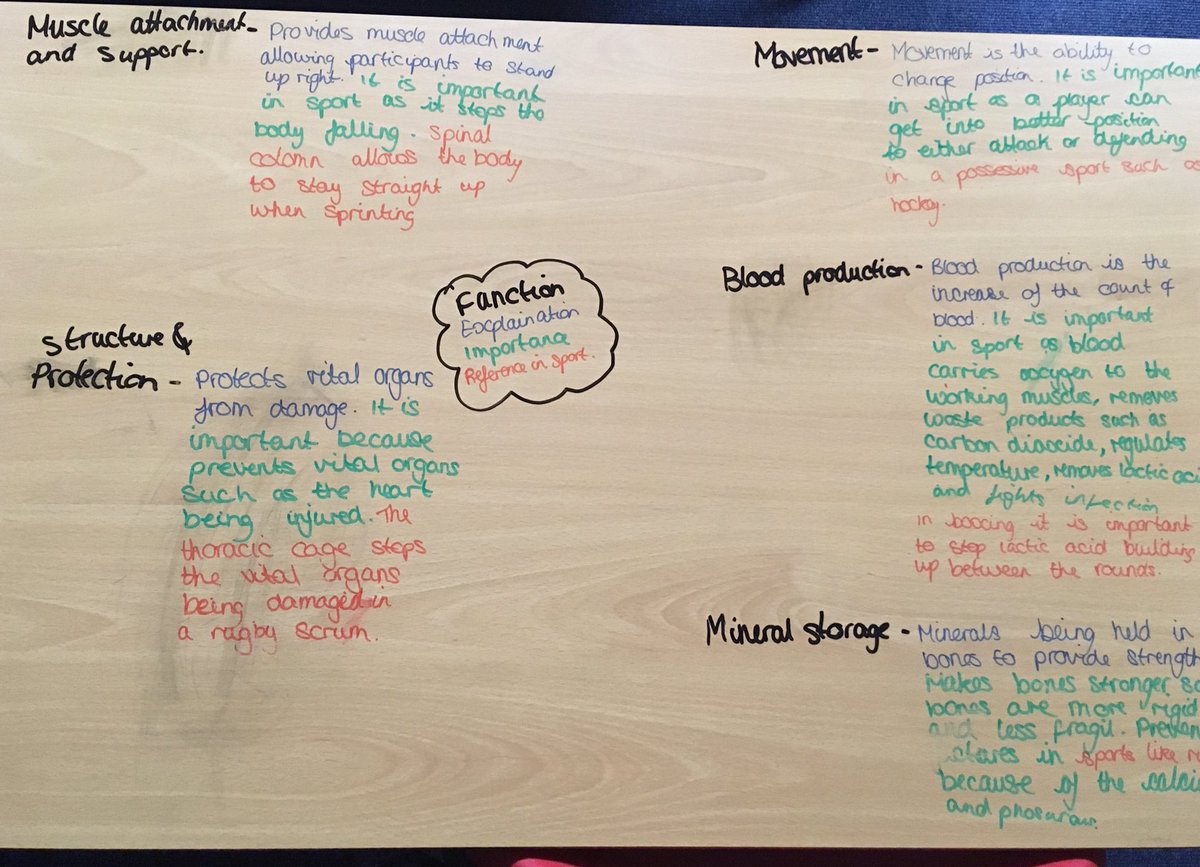 Muscle attachment - Provides muscle attachment
and support. allowing participants to stand
up right. It is important
in sport as it stops the
body falling. Spinal
column allows the body
to stay straight up
when sprinting
Structure &
Protection - Protects vital organs
from damage. It is
important because
prevents vital organs
such as the heart
being injured. The
thoracic cage stops
the vital organs
being damaged in
a rugby scrum.
Function
Explaination
Importance
Reference in sport.
Movement - Movement is the ability to
change position. It is important
in sport as a player can
get into better position
to either attack or defending
in a possessive sport such as
hockey.
Blood production - Blood production is the
increase of the count of
blood. It is important
in sport as blood
carries oxygen to the
working muscles, removes
waste products such as
carbon dioxide, regulates
temperature, removes lactic aci
and fights infection
in boxing it is important
to stop lactic acid building
up between the rounds.
Mineral storage - Minerals being held in
bones to provide strength
Makes bones stronger so
bones are more rigid
and less fragil. Preven
in sports like
because of the calci
and